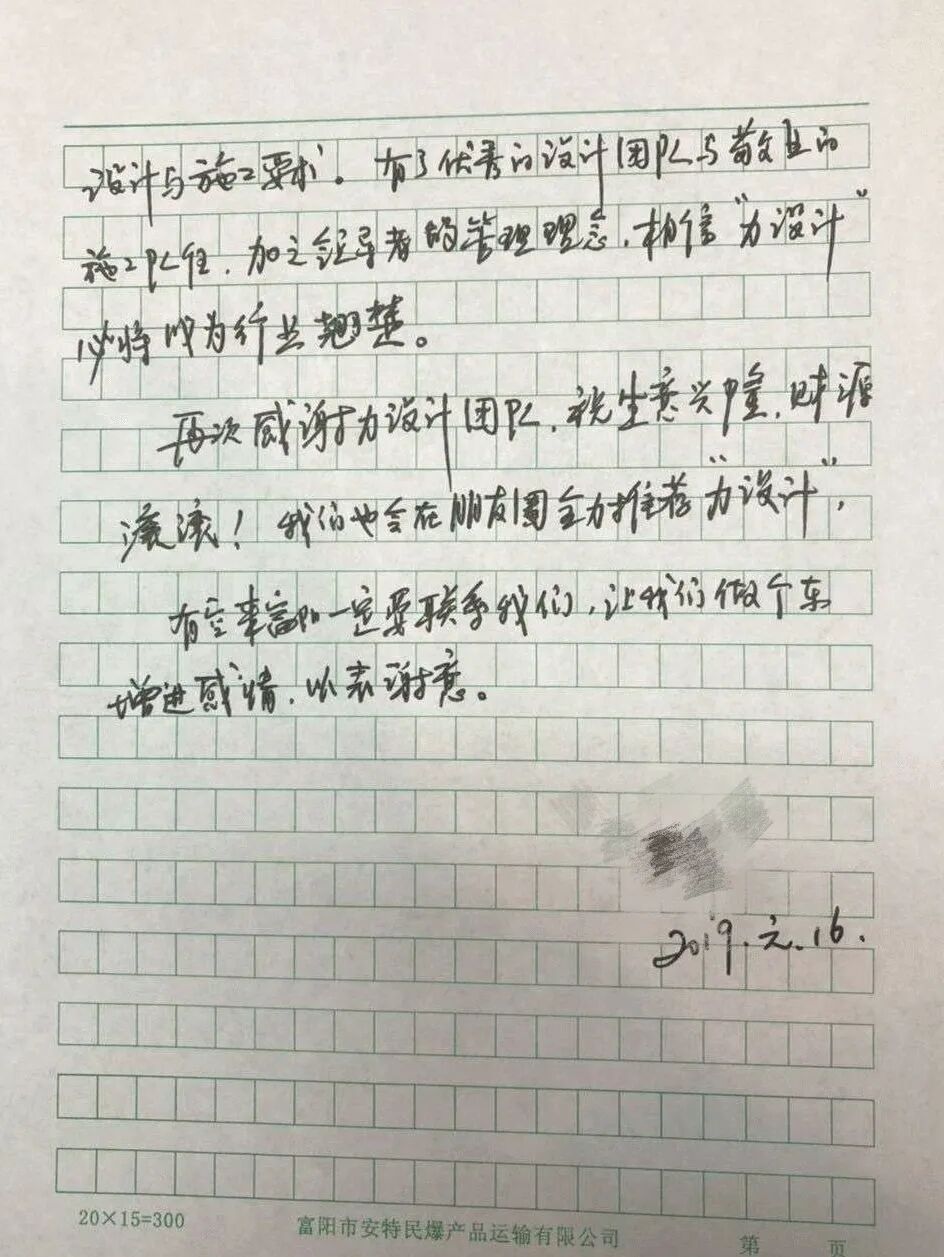 设计与施工要求。有了优秀的设计团队与敬业的
施工队伍，加之领导者的管理理念，相信“力设计”
必将成为行业翘楚。
再次感谢力设计团队，祝生意兴隆，财源
滚滚！我们也会在朋友圈全力推荐“力设计”，
有空来富阳一定要联系我们，让我们做个东
增进感情，以表谢意。
2019.元.16.
20×15=300 富阳市安特民爆产品运输有限公司 第 页